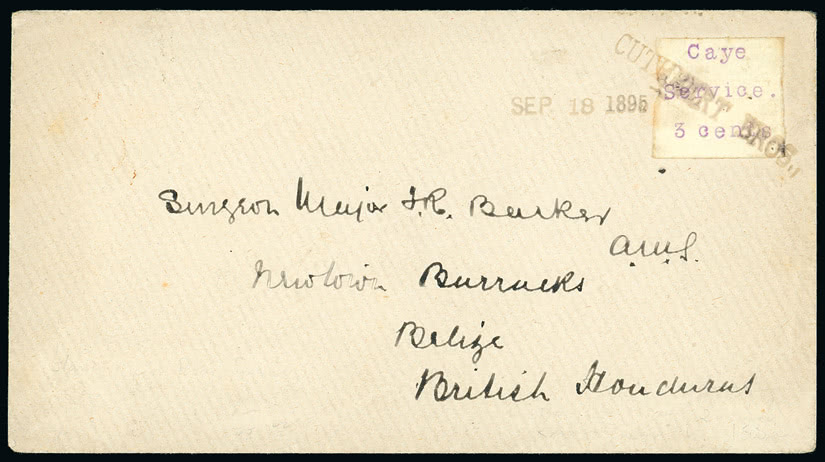 Caye
Service.
3 cents
CUTHBERT BROS.,
SEP 18 1895
Surgeon Major F.R. Barker
A.M.S.
Newtown Barracks
Belize
British Honduras